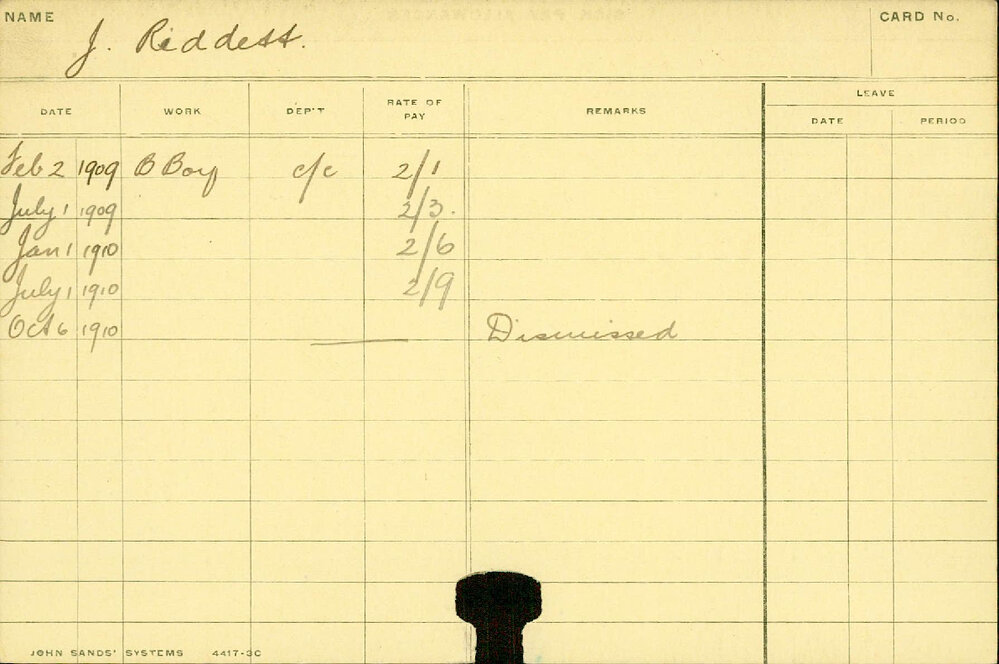 NAME J. Riddett. CARD No.
LEAVE
DATE WORK DEP'T RATE OF PAY REMARKS DATE PERIOD
Feb 2 1909 B Boy c/c 2/1
July 1 1909 2/3.
Jan 1 1910 2/6
July 1 1910 2/9
Oct 6 1910 Dismissed
JOHN SANDS' SYSTEMS 4417-3C